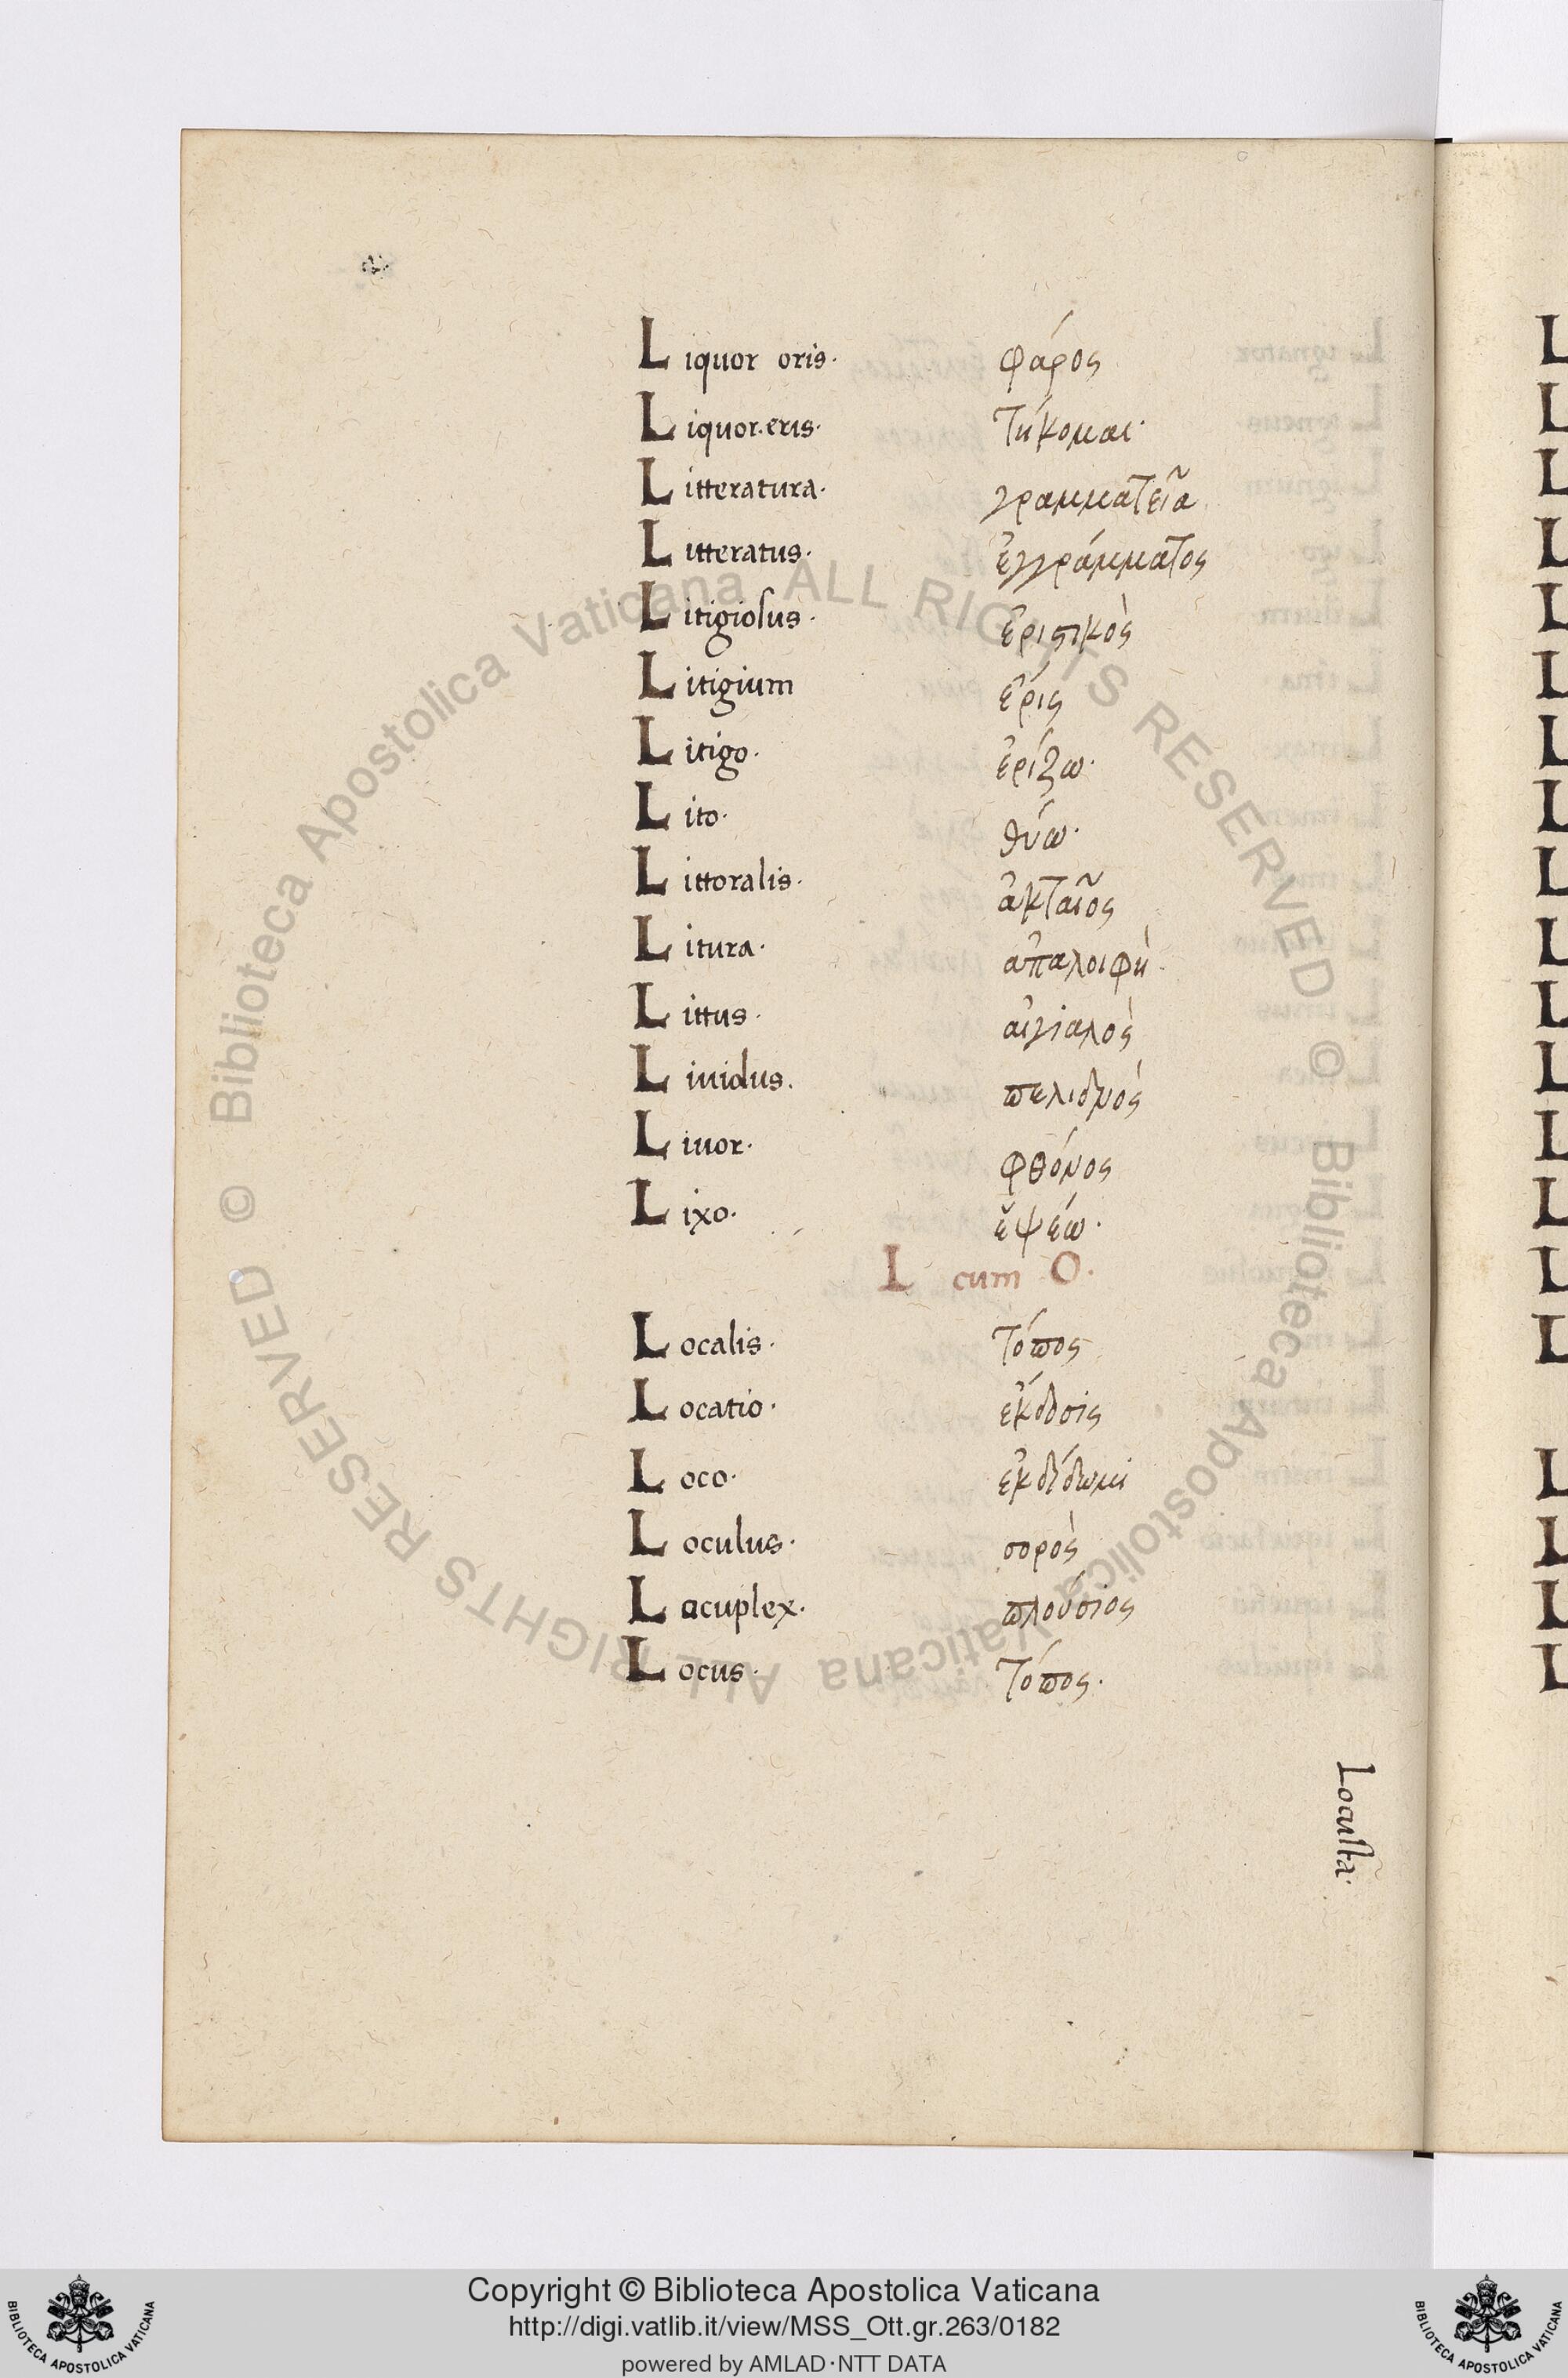 Liquor oris· φάρος
Liquor·eris· τήκομαι·
Litteratura· γραμματεῖα
Litteratus· ἐγγράμματος
Litigiosus· ἐριστικὸς
Litigium ἔρις
Litigo· ἐρίζω·
Lito· θύω·
Littoralis· ἀκταῖος
Litura· ἀπαλοιφὴ·
Littus· αἰγιαλὸς
Liuidus. πελιδνὸς
Liuor· φθόνος
Lixo· ἕψέω·
L cum O·
Localis· τόπος
Locatio· ἔκδοσις
Loco· ἐκδίδωμι
Loculus· σορὸς
Lacuplex· πλούσιος
Locus· τόπος·
Locusta·
© Biblioteca Apostolica Vaticana ALL RIGHTS RESERVED © Biblioteca Apostolica Vaticana ALL RIGHTS RESERVED
Copyright © Biblioteca Apostolica Vaticana
http://digi.vatlib.it/view/MSS_Ott.gr.263/0182
powered by AMLAD·NTT DATA
BIBLIOTECA APOSTOLICA VATICANA
BIBLIOTECA APOSTOLICA VATICANA